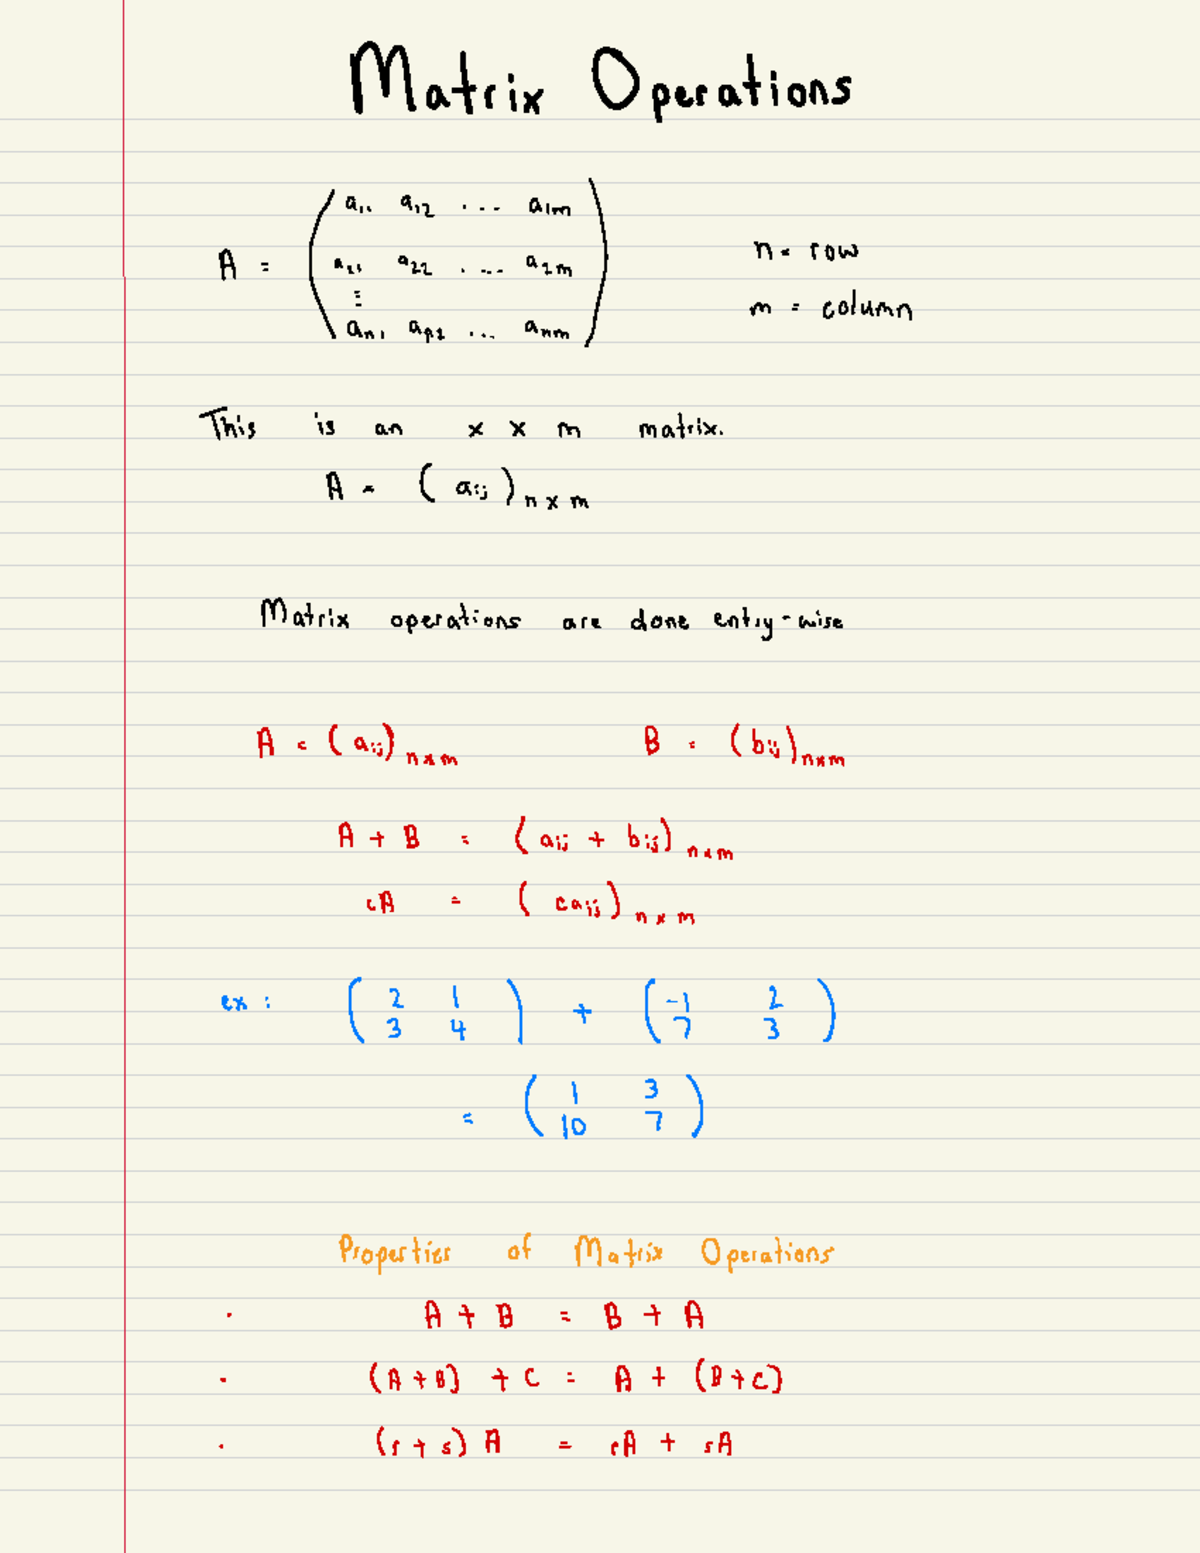 Matrix Operations
A = ( a11 a12 .... a1m
a21 a22 .... a2m
⋮
an1 an2 ... anm )
n = row
m = column
This is an x x m matrix.
A = (aij) n x m
Matrix operations are done entry-wise
A = (aij) n x m B = (bij) n x m
A + B = (aij + bij) n x m
cA = (caij) n x m
ex: ( 2 1 ) + ( -1 2 )
( 3 4 ) ( 7 3 )
= ( 1 3 )
( 10 7 )
Properties of Matrix Operations
· A + B = B + A
· (A + B) + C = A + (B + C)
· (r + s) A = rA + sA